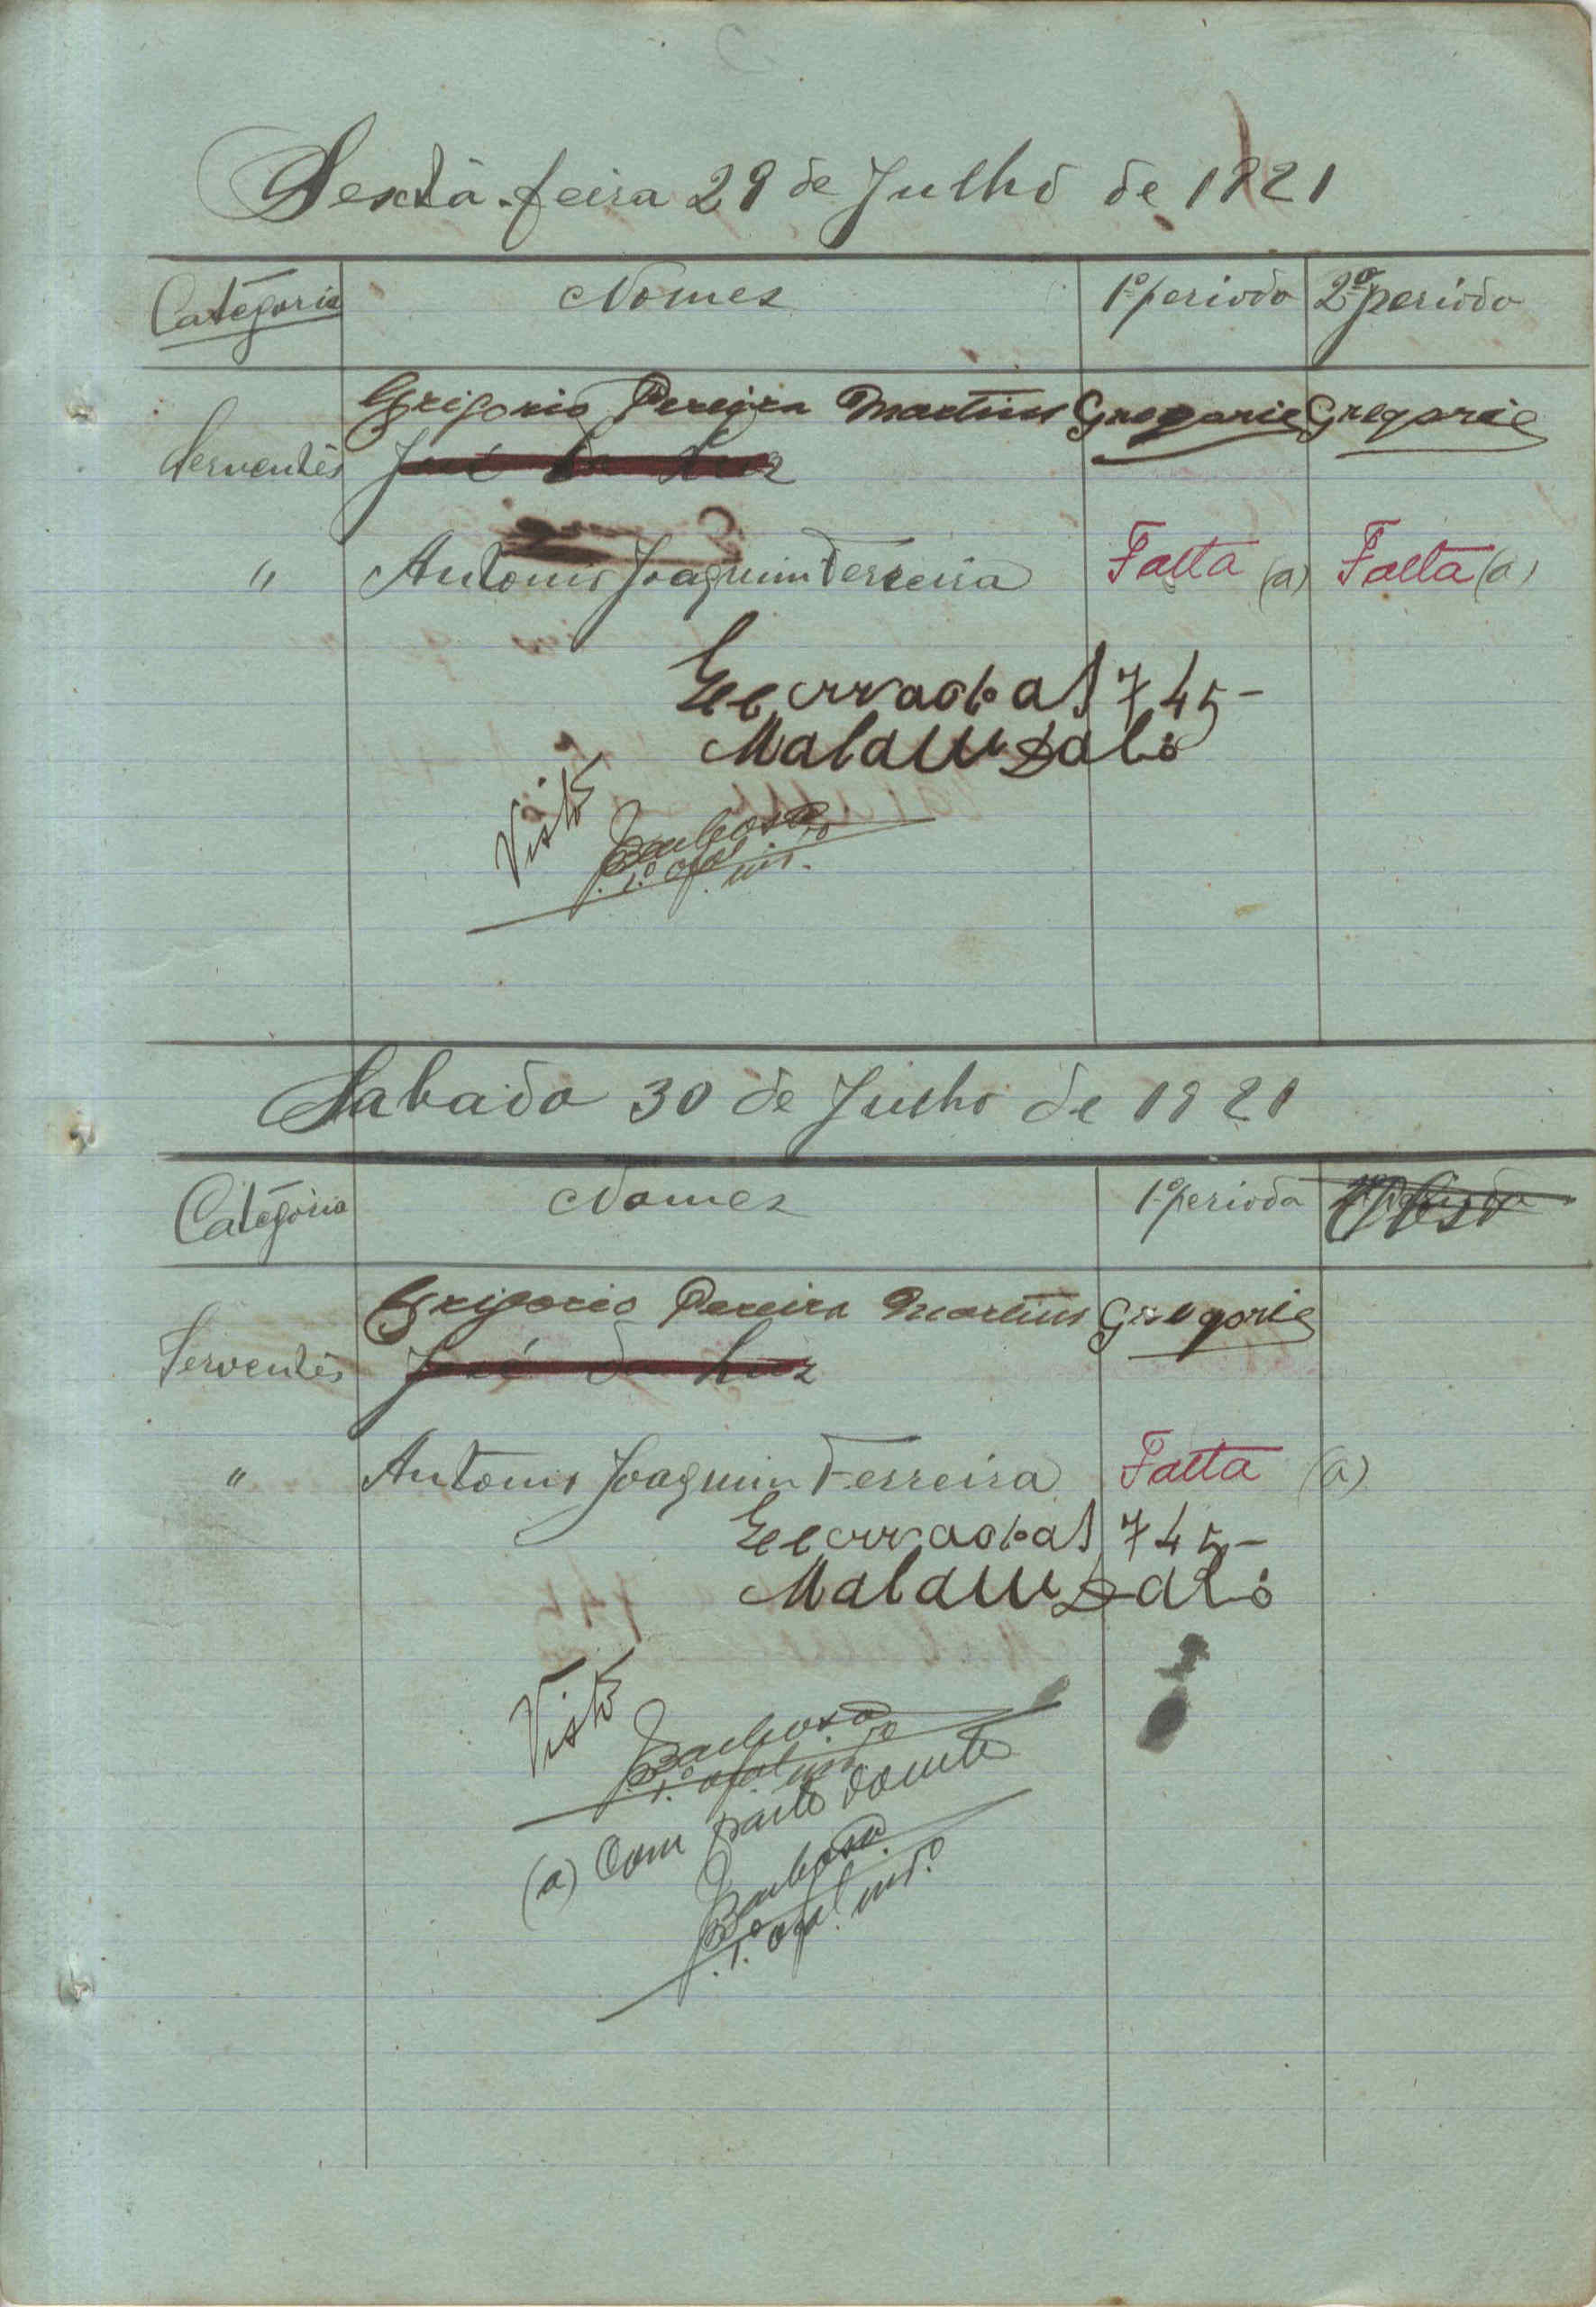 Sexta-feira 29 de Julho de 1921
Categoria Nomes 1º periodo 2º periodo
Grigorio Pereira Martins Gregorio Gregorio
Serventes José da Luz
" Antonio Joaquim Ferreira Falta (a) Falta (a)
745-
Visto
Barbosa
1º ofal
Sabado 30 de Julho de 1921
Categoria Nomes 1º periodo
Grigorio Pereira Martins Gregorio
Serventes José da Luz
" Antonio Joaquim Ferreira Falta (a)
745-
Visto
Barbosa
1º ofal
(a) Com parte doente
Barbosa
1º ofal